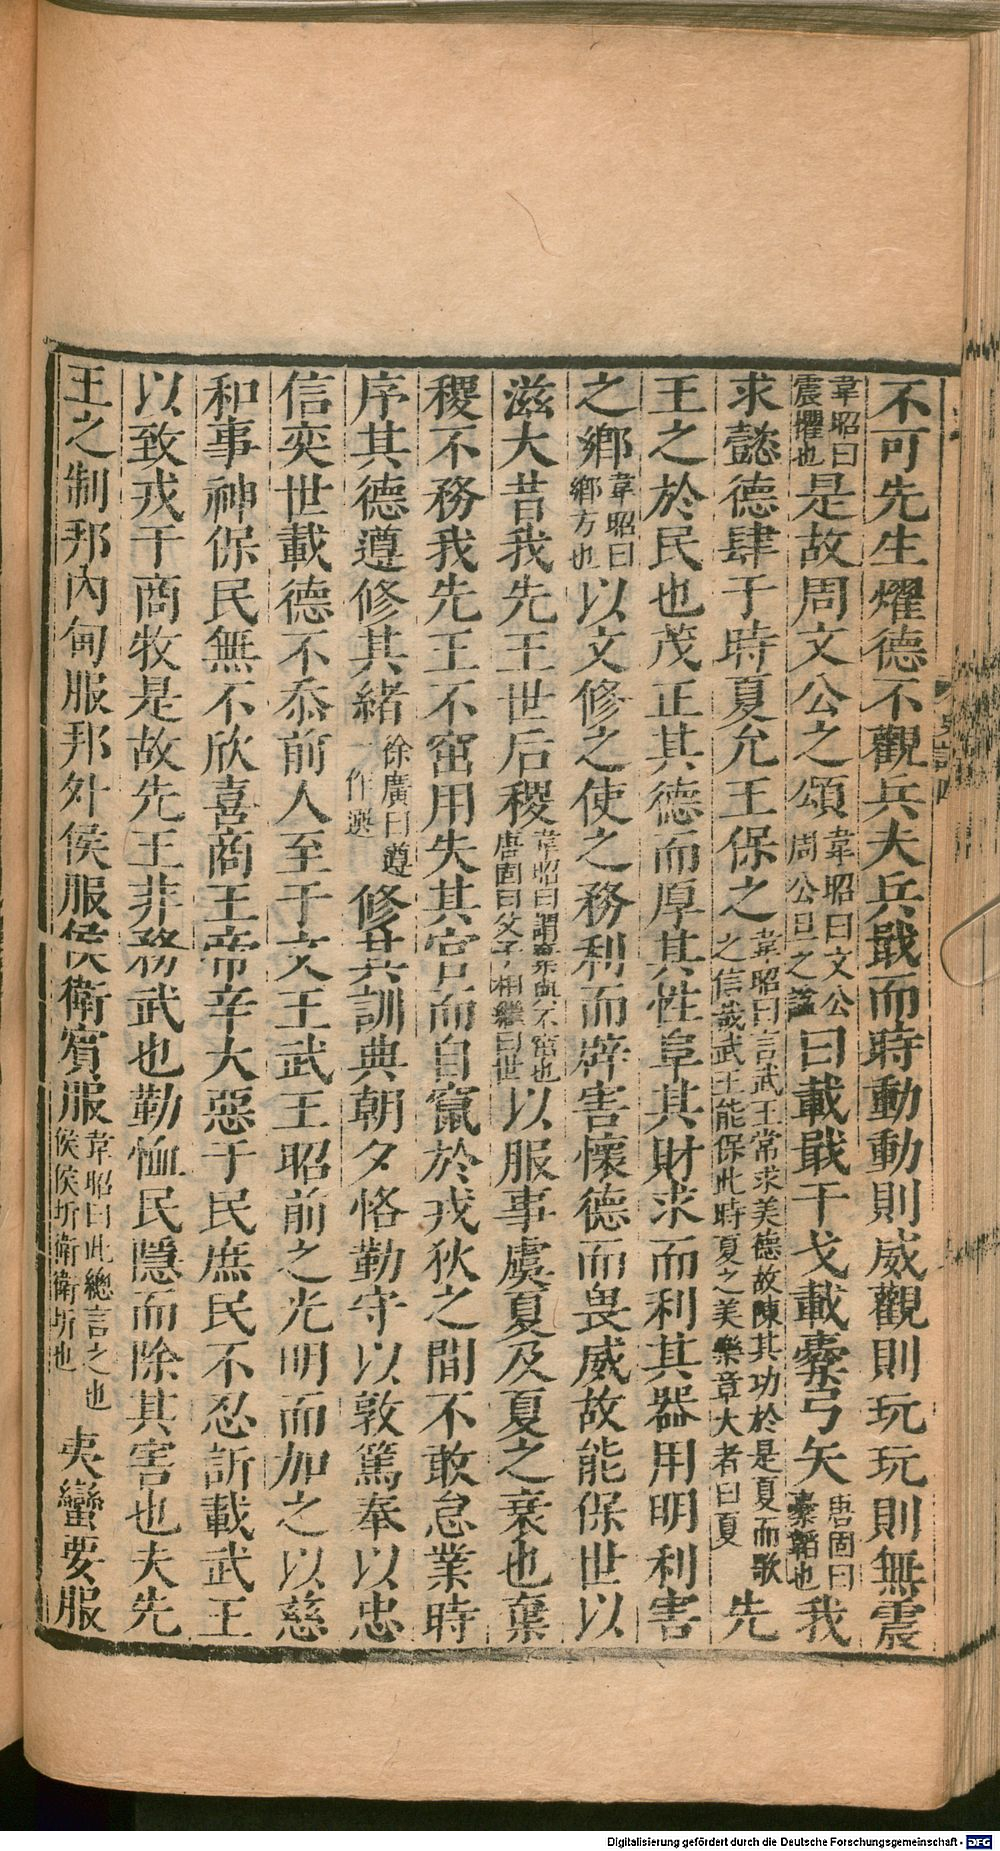 不可先生燿德不觀兵夫兵戢而時動動則威觀則玩玩則無震
韋昭曰震懼也是故周文公之頌韋昭曰文公周公旦之諡曰載戢干戈載櫜弓矢唐固曰櫜韜也我
求懿德肆于時夏允王保之韋昭曰言武王常求美德故陳其功於是夏而歌之信哉武王能保此時夏之美樂章大者曰夏先
王之於民也茂正其德而厚其性阜其財求而利其器用明利害
之鄉韋昭曰鄉方也以文修之使之務利而辟害懷德而畏威故能保世以
滋大昔我先王世后稷韋昭曰謂棄與不窋也唐固曰父子相繼曰世以服事虞夏及夏之衰也棄
稷不務我先王不窋用失其官而自竄於戎狄之間不敢怠業時
序其德遵修其緒徐廣曰遵一作選修其訓典朝夕恪勤守以敦篤奉以忠
信奕世載德不忝前人至于文王武王昭前之光明而加之以慈
和事神保民無不欣喜商王帝辛大惡于民庶民不忍訢載武王
以致戎于商牧是故先王非務武也勤恤民隱而除其害也夫先
王之制邦內甸服邦外侯服侯衛賓服韋昭曰此總言之也侯侯圻衛衛圻也夷蠻要服
Digitalisierung gefördert durch die Deutsche Forschungsgemeinschaft - DFG